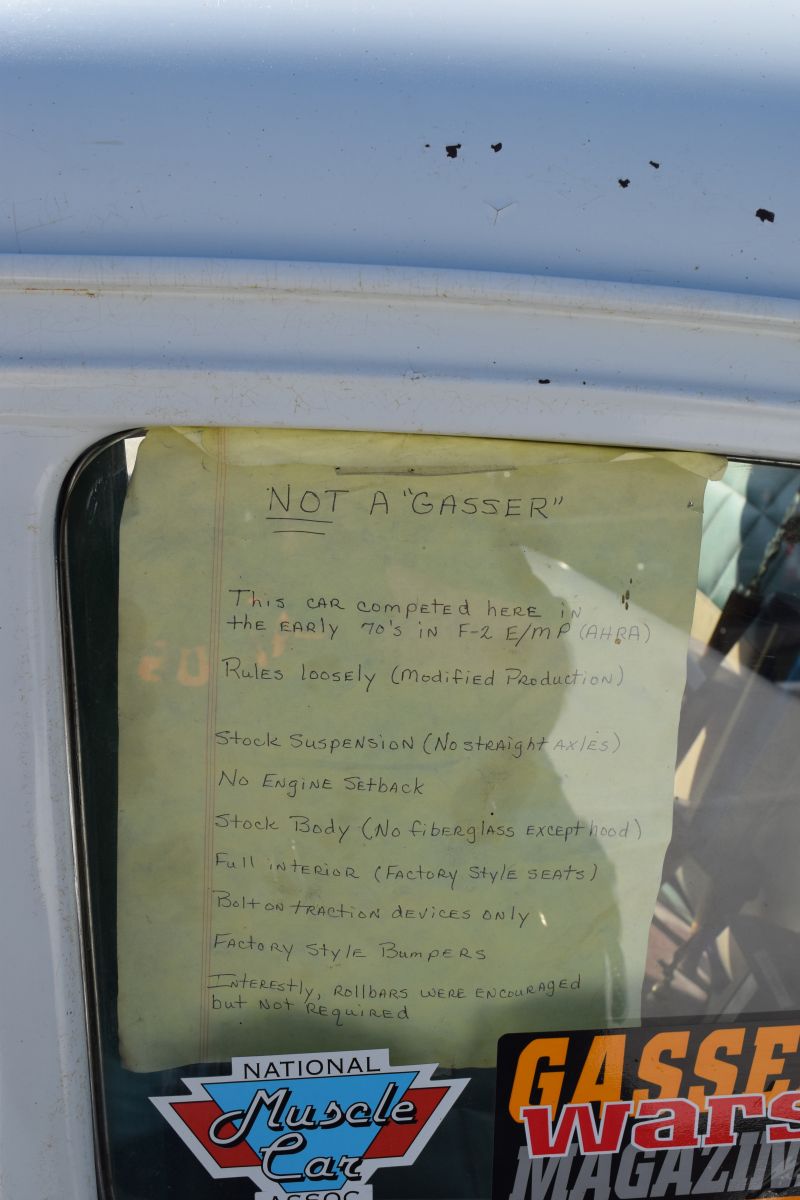 NOT A "GASSER"
This car competed here in
the early 70's in F-2 E/MP (AHRA)
Rules loosely (Modified Production)
Stock Suspension (No straight axles)
No Engine Setback
Stock Body (No fiberglass except hood)
Full interior (Factory Style seats)
Bolt on traction devices only
Factory Style Bumpers
Interestly, rollbars were encouraged
but not required
NATIONAL
Muscle
Car
ASSOC
GASSE
wars
MAGAZIN